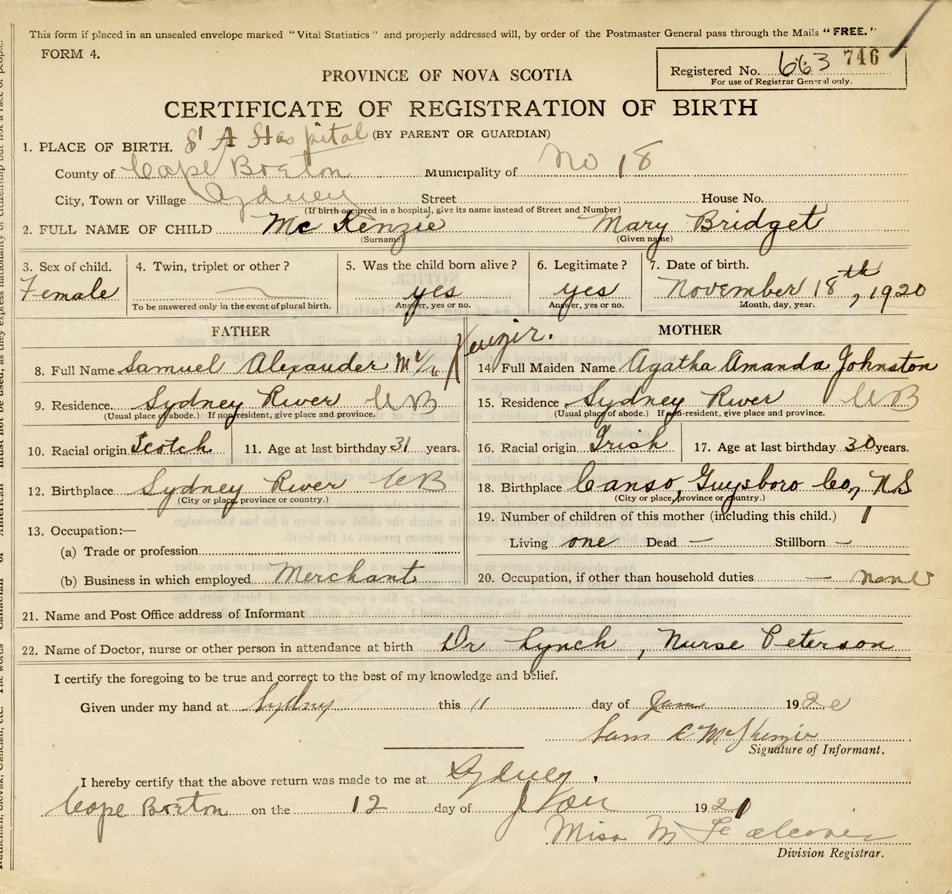 This form if placed in an unsealed envelope marked "Vital Statistics" and properly addressed will, by order of the Postmaster General pass through the Mails "FREE."
FORM 4.
Registered No. 663 746
For use of Registrar General only.
PROVINCE OF NOVA SCOTIA
CERTIFICATE OF REGISTRATION OF BIRTH
(BY PARENT OR GUARDIAN)
1. PLACE OF BIRTH. St A Hospital
County of Cape Breton Municipality of No 18
City, Town or Village Sydney Street House No.
(If birth occurred in a hospital, give its name instead of Street and Number)
2. FULL NAME OF CHILD Mc Kenzie Mary Bridget
(Surname) (Given name)
3. Sex of child. 4. Twin, triplet or other? 5. Was the child born alive? 6. Legitimate? 7. Date of birth.
Female yes yes November 18th, 1920
To be answered only in the event of plural birth. Answer, yes or no. Answer, yes or no. Month, day, year.
FATHER
8. Full Name Samuel Alexander McKenzie.
9. Residence Sydney River CB
(Usual place of abode.) If non-resident, give place and province.
10. Racial origin Scotch 11. Age at last birthday 31 years.
12. Birthplace Sydney River CB
(City or place, province or country.)
13. Occupation:—
(a) Trade or profession
(b) Business in which employed Merchant
MOTHER
14. Full Maiden Name Agatha Amanda Johnston
15. Residence Sydney River CB
(Usual place of abode.) If non-resident, give place and province.
16. Racial origin Irish 17. Age at last birthday 30 years.
18. Birthplace Canso, Guysboro Co, NS
(City or place, province or country.)
19. Number of children of this mother (including this child.) 1
Living one Dead — Stillborn —
20. Occupation, if other than household duties —
21. Name and Post Office address of Informant
22. Name of Doctor, nurse or other person in attendance at birth Dr Lynch, Nurse Peterson
I certify the foregoing to be true and correct to the best of my knowledge and belief.
Given under my hand at Sydney this 11 day of Jan 192
Sam A McKenzie
Signature of Informant.
I hereby certify that the above return was made to me at Sydney.
Cape Breton on the 12 day of Jan 1921
Miss M
Division Registrar.